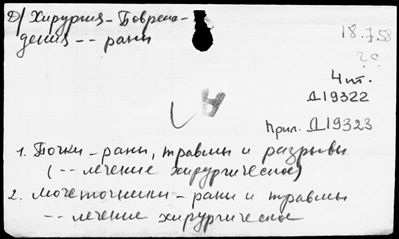 Д/ Хирургия - Поврежде-
дения -- раны
18.7.58
4 шт.
Д19322
Прил. Д19323
1. Почки - раны, травмы и разрывы
(-- лечение хирургическое)
2. Мочеточники - раны и травмы
-- лечение хирургическое